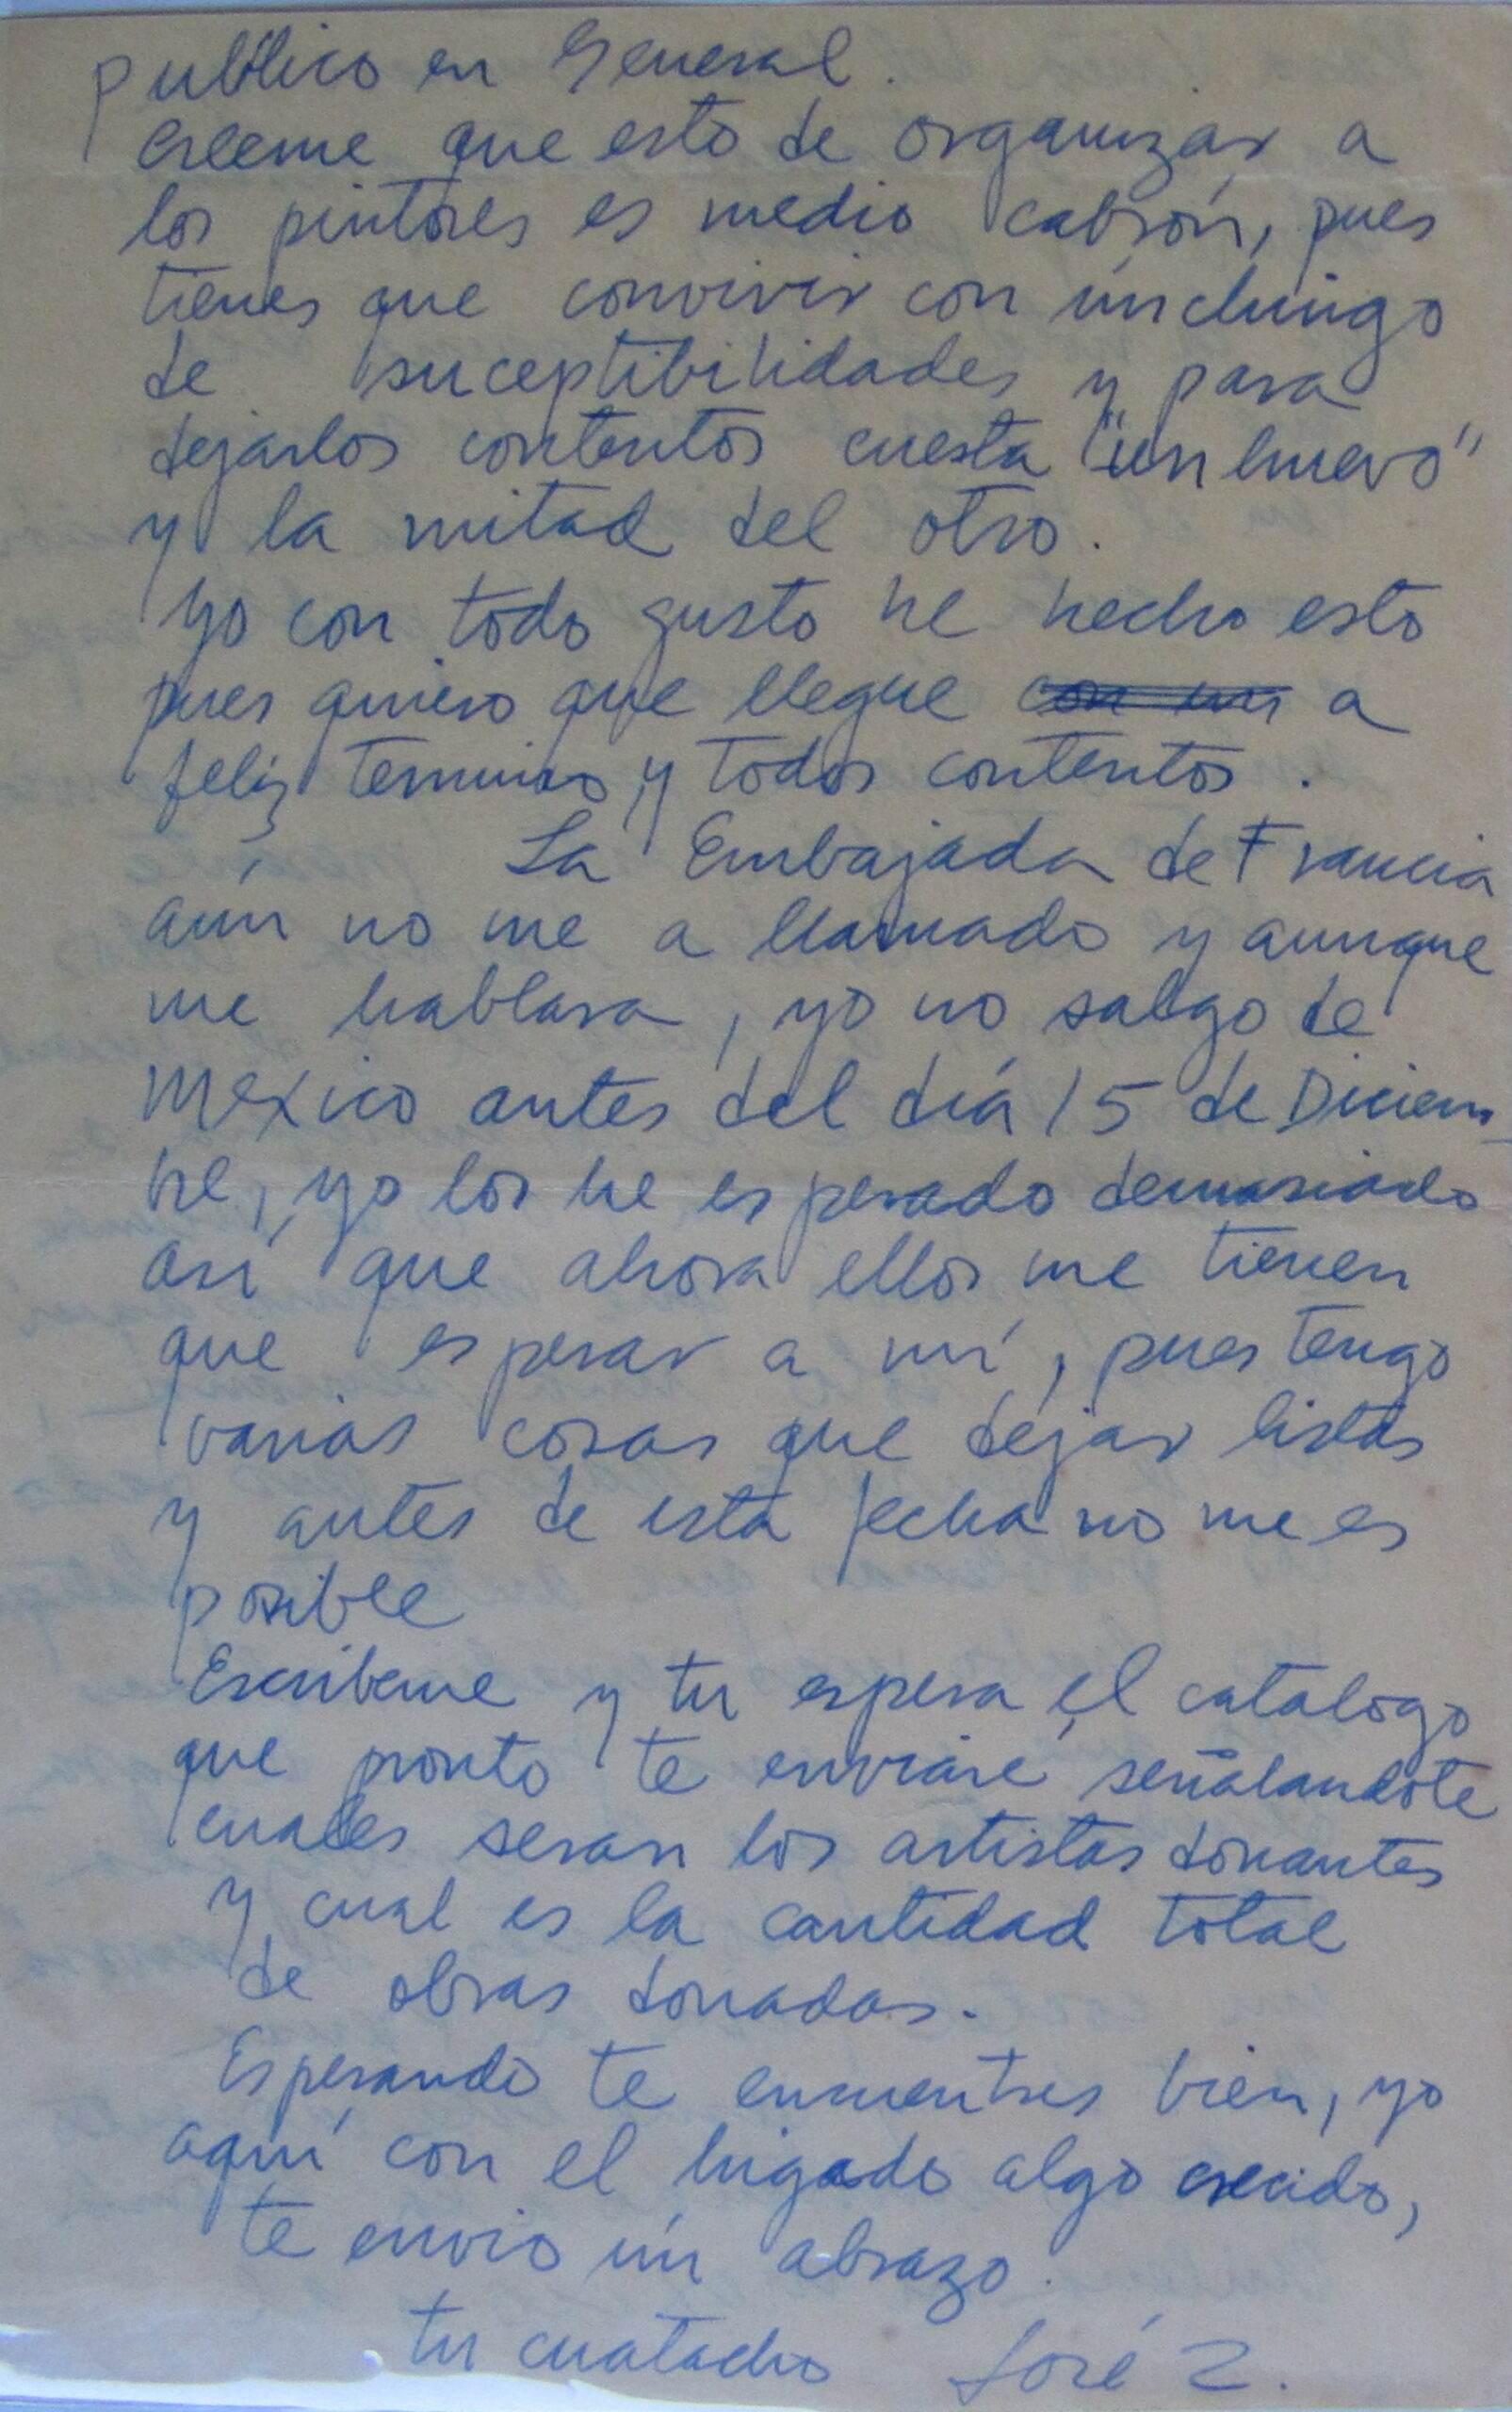 publico en General.
creeme que esto de organizar a
los pintores es medio cabrón, pues
tienes que convivir con ún chingo
de suceptibilidades y para
dejarlos contentos cuesta "un huevo"
y la mitad del otro.
Yo con todo gusto he hecho esto
pues quiero que llegue con un a
feliz termino y todos contentos.
La Embajada de Francia
aún no me a llamado y aunque
me hablara, yo no salgo de
Mexico antes del día 15 de Diciem-
bre, yo los he esperado demasiado
así que ahora ellos me tienen
que esperar a mí, pues tengo
varias cosas que dejar listas
y antes de esta fecha no me es
posible
Escribeme y tu espera el catalogo
que pronto te enviaré señalandote
cuales seran los artistas donantes
y cual es la cantidad total
de obras donadas.
Esperando te encuentres bien, yo
aquí con el higado algo crecido,
te envio ún abrazo.
tu cuatacho José Z.